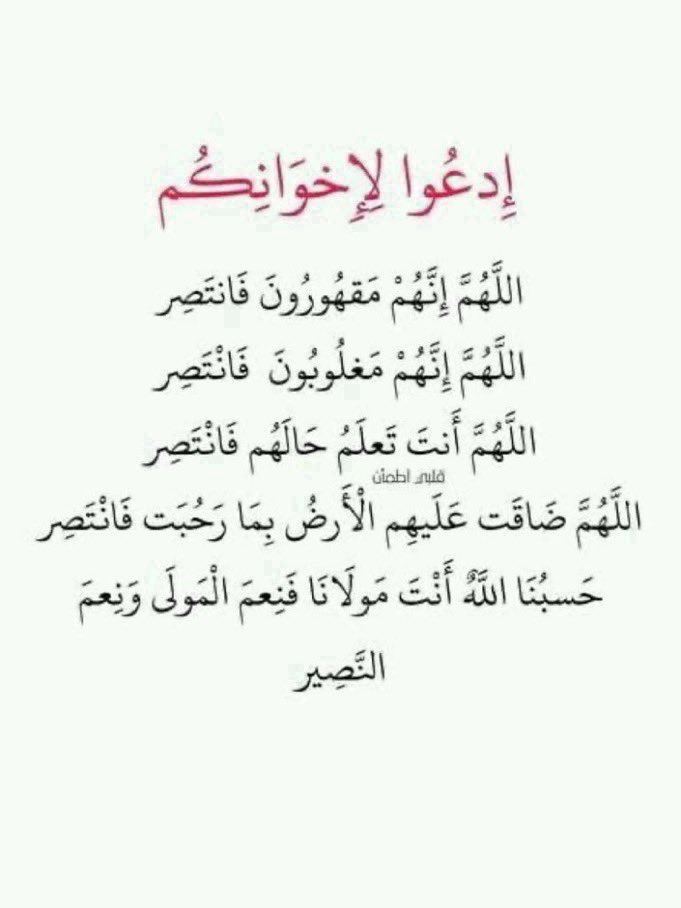 إِدعُوا لِإِخوَانِكُم
اللَّهُمَّ إِنَّهُمْ مَقهُورُونَ فَانتَصِر
اللَّهُمَّ إِنَّهُمْ مَغلُوبُونَ فَانْتَصِر
اللَّهُمَّ أَنتَ تَعلَمُ حَالَهُم فَانْتَصِر
قلبي اطمأن
اللَّهُمَّ ضَاقَت عَلَيهِم الْأَرضُ بِمَا رَحُبَت فَانْتَصِر
حَسبُنَا اللَّهُ أَنْتَ مَولَانَا فَنِعمَ الْمَولَى وَنِعمَ
النَّصِير